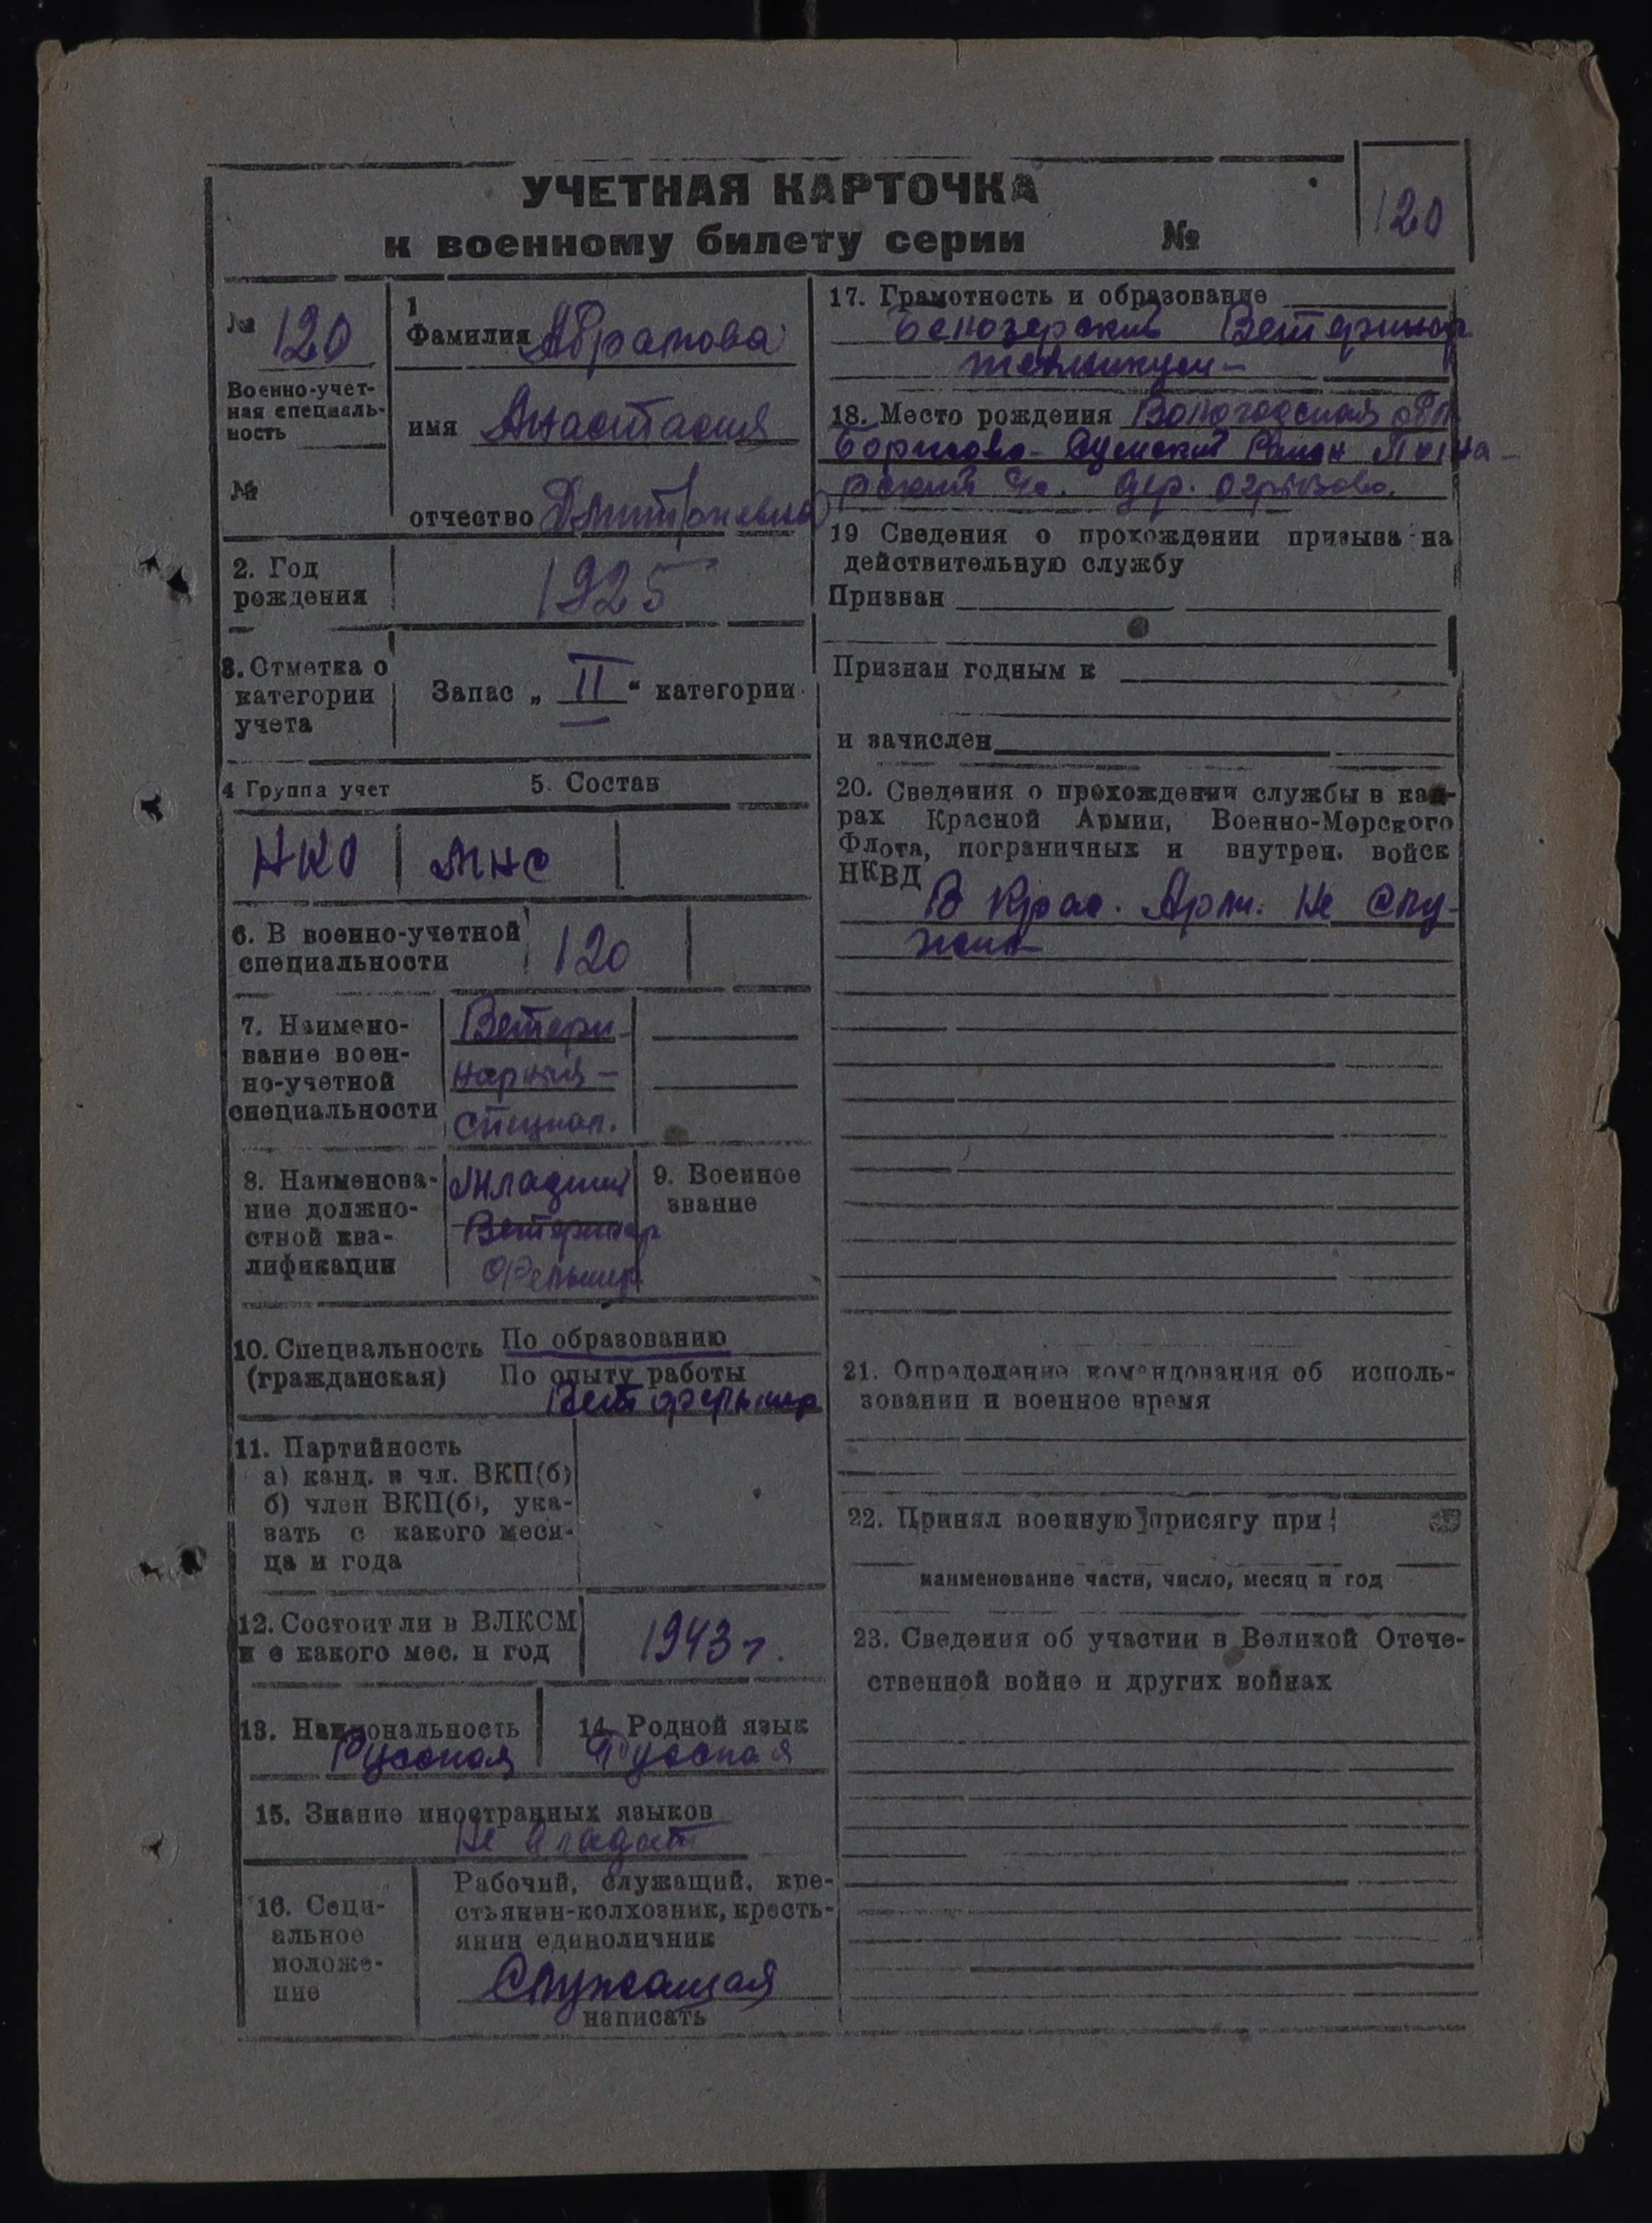 УЧЕТНАЯ КАРТОЧКА
к военному билету серии №
120
№ 120
Военно-учет-
ная специаль-
ность
№
1
Фамилия Абрамова
имя Анастасия
отчество Дмитриевна
2. Год
рождения
1925
3. Отметка о
категории
учета
Запас „ II “ категории
4 Группа учет
5. Состав
НКО
МНС
6. В военно-учетной
специальности
120
7. Наимено-
вание воен-
но-учетной
специальности
Ветери-
нарная-
специал.
8. Наименова-
ние должно-
стной ква-
лификации
Младший
Ветеринар
Фельшер
9. Военное
звание
10. Специальность
(гражданская)
По образованию
По опыту работы
Ветфельшер
11. Партийность
а) канд. в чл. ВКП(б)
б) член ВКП(б), ука-
зать с какого меся-
ца и года
12. Состоит ли в ВЛКСМ
и с какого мес. и год
1943 г.
13. Национальность
Русская
14. Родной язык
Русская
15. Знание иностранных языков
Не владает
16. Соци-
альное
положе-
ние
Рабочий, служащий, кре-
стьянин-колхозник, кресть-
янин единоличник
Служащая
написать
17. Грамотность и образование
Белозерский Ветеринар
техникум-
18. Место рождения Вологодская обл
Борисово-Судский Район
дер.
19 Сведения о прохождении призыва на
действительную службу
Призван
Признан годным к
и зачислен
20. Сведения о прохождении службы в кад-
рах Красной Армии, Военно-Морского
Флота, пограничных и внутрен. войск
НКВД
В Крас. Арм. Не слу-
жила
21. Определение командования об исполь-
зовании и военное время
22. Принял военную присягу при
наименование части, число, месяц и год
23. Сведения об участии в Великой Отече-
ственной войне и других войнах